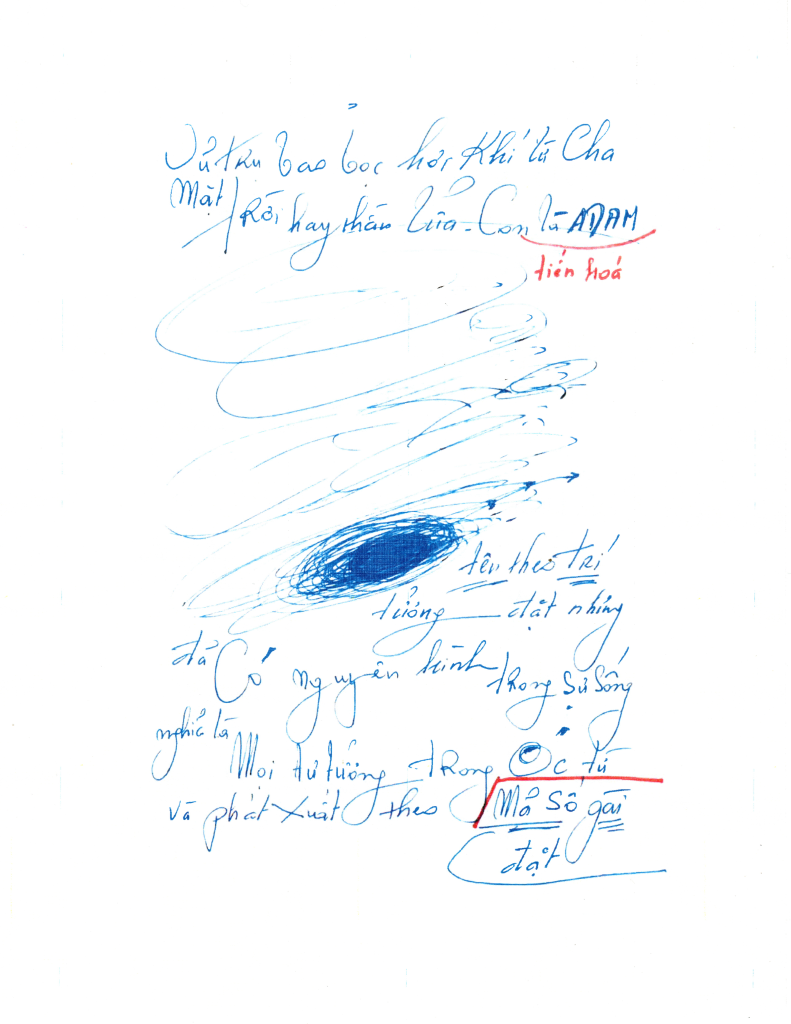 Vũ trụ bao bọc hơi Khí là Cha
Mặt Trời hay thần lửa - Con là ADAM
tiến hoá
tên theo trí
tưởng đặt những
đã Có nguyên hình trong sự sống
nghĩa là
Mọi tư tưởng trong Óc từ
và phát xuất theo Mã Số gài
đặt